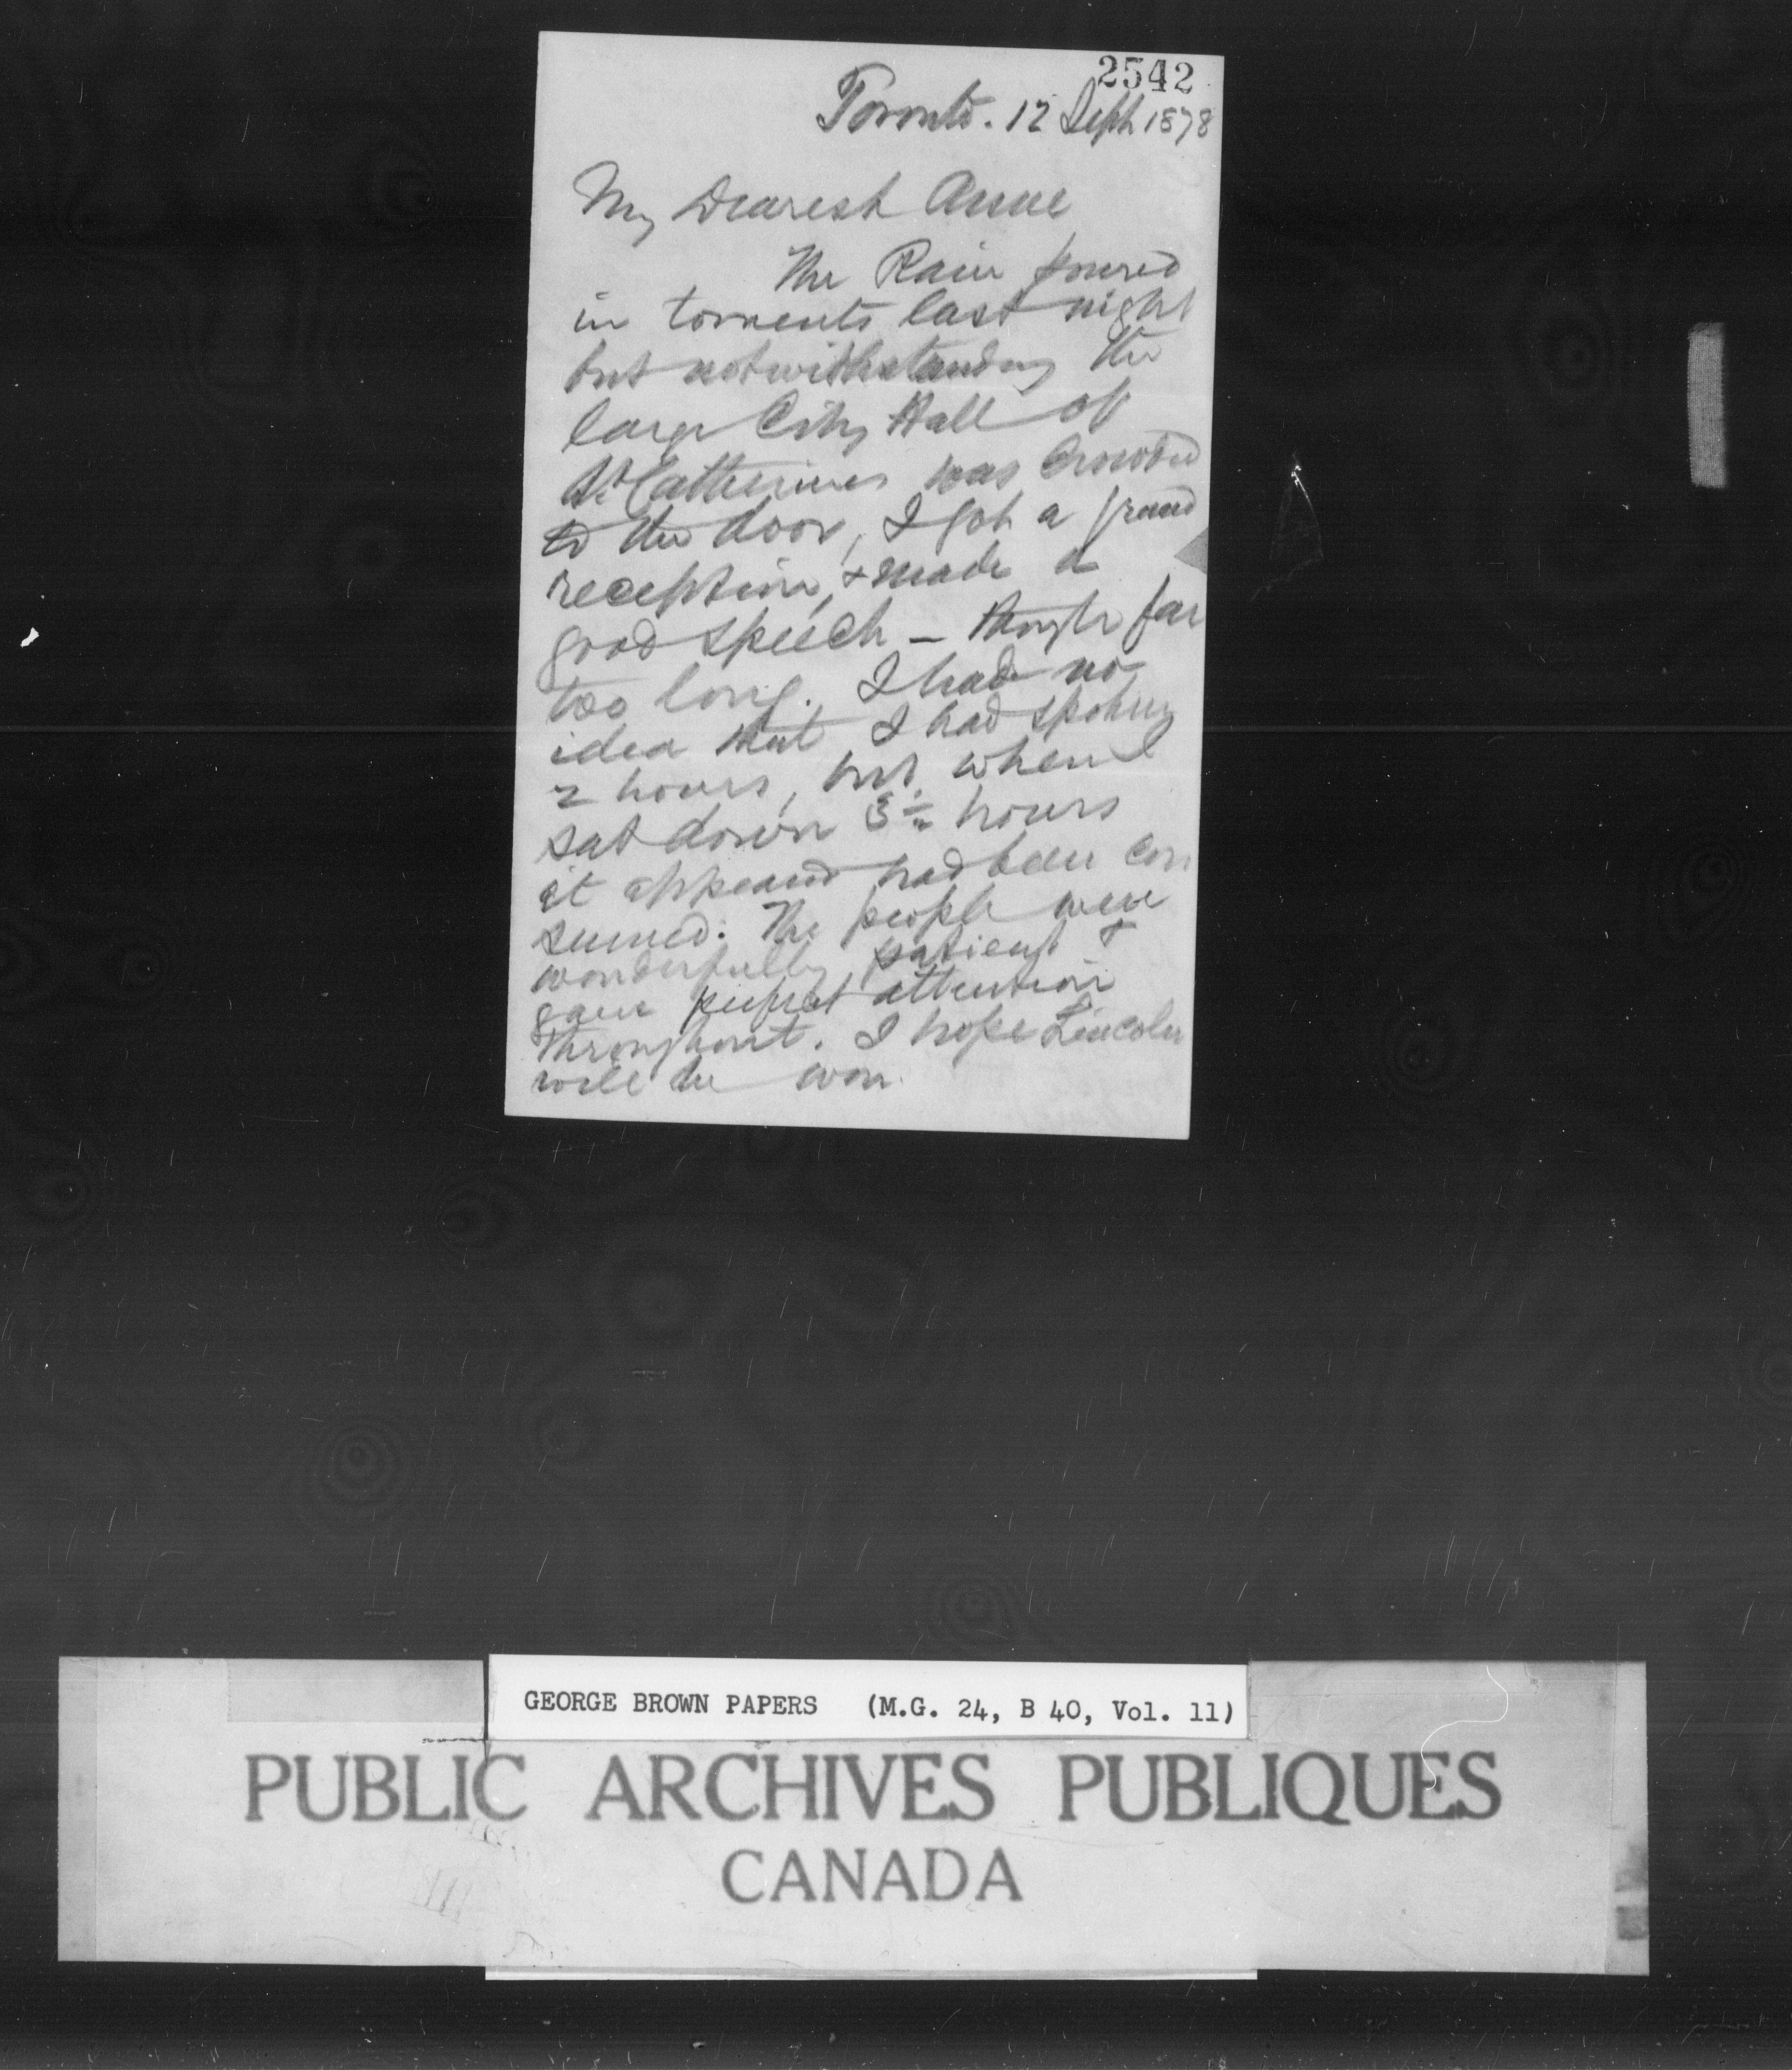 2542
Toronto. 12 Sept 1878
My Dearest Anne
The Rain poured
in torrents last night
but notwithstanding the
large City Hall of
St Catherines was crowded
to the door, I got a grand
reception, + made a
good speech — though far
too long. I had no
idea that I had spoken
2 hours, but, when I
sat down 3½ hours
it appeared had been con
sumed. The people were
wonderfully patient &
gave perfect attention
throughout. I hope Lincoln
will be won.
GEORGE BROWN PAPERS (M.G. 24, B 40, Vol. 11)
PUBLIC ARCHIVES PUBLIQUES
CANADA